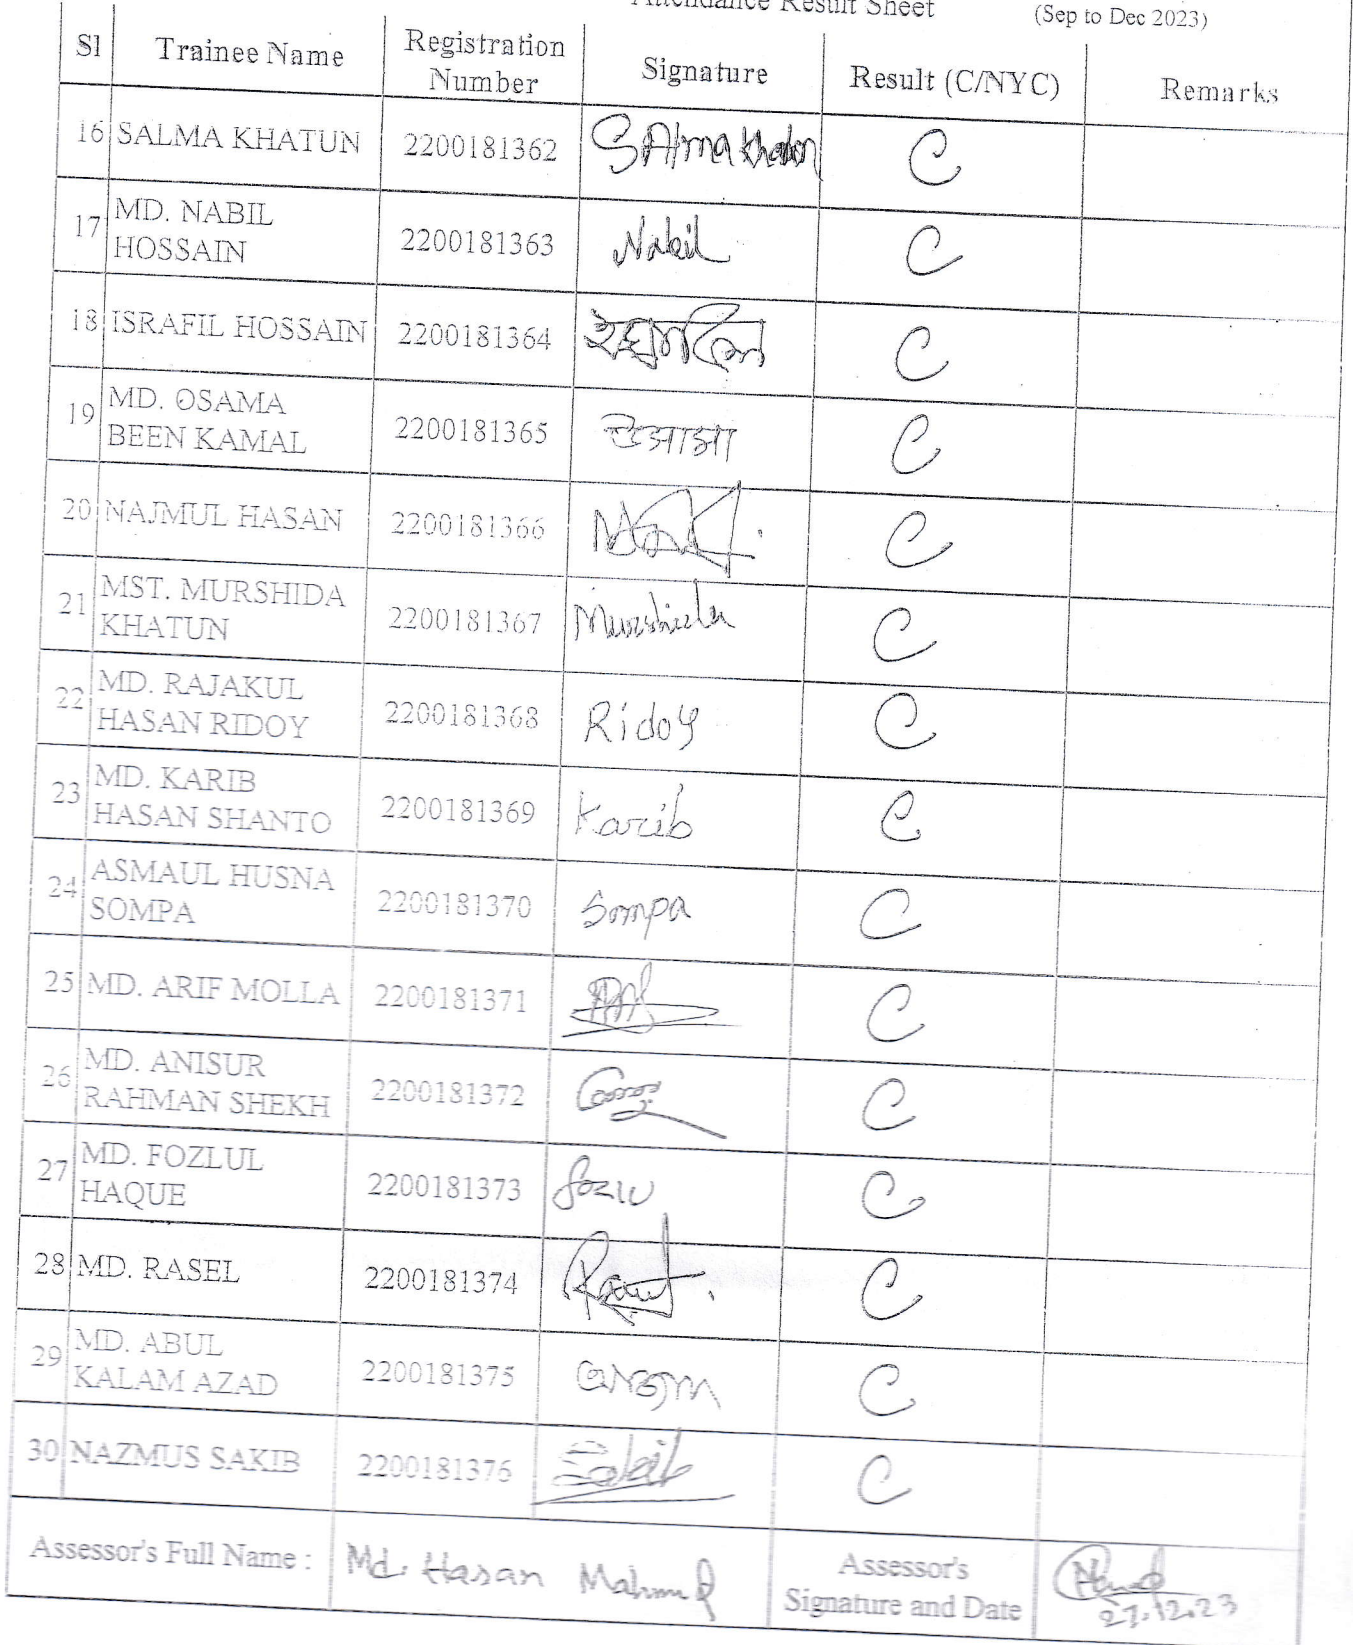 Attendance Result Sheet (Sep to Dec 2023)
Sl Trainee Name Registration Number Signature Result (C/NYC) Remarks
16 SALMA KHATUN 2200181362 SAlma khatun C
17 MD. NABIL HOSSAIN 2200181363 Nabil C
18 ISRAFIL HOSSAIN 2200181364 C
19 MD. OSAMA BEEN KAMAL 2200181365 C
20 NAJMUL HASAN 2200181366 C
21 MST. MURSHIDA KHATUN 2200181367 Murshida C
22 MD. RAJAKUL HASAN RIDOY 2200181368 Ridoy C
23 MD. KARIB HASAN SHANTO 2200181369 Karib C
24 ASMAUL HUSNA SOMPA 2200181370 Sompa C
25 MD. ARIF MOLLA 2200181371 C
26 MD. ANISUR RAHMAN SHEKH 2200181372 C
27 MD. FOZLUL HAQUE 2200181373 C
28 MD. RASEL 2200181374 C
29 MD. ABUL KALAM AZAD 2200181375 C
30 NAZMUS SAKIB 2200181376 Sakib C
Assessor's Full Name : Md. Hasan Mahmud Assessor's Signature and Date 27.12.23